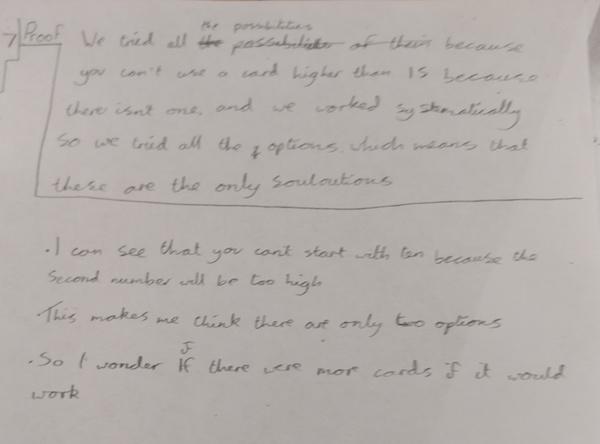 7) Proof We tried all the possibilities the possabilities of theirs because
you can't use a card higher than 15 because
there isnt one, and we worked systematically
so we tried all the options. which means that
these are the only souloutions
. I can see that you cant start with ten because the
second number will be too high
. This makes me think there are only two options
. So I wonder If there were more cards if it would
work